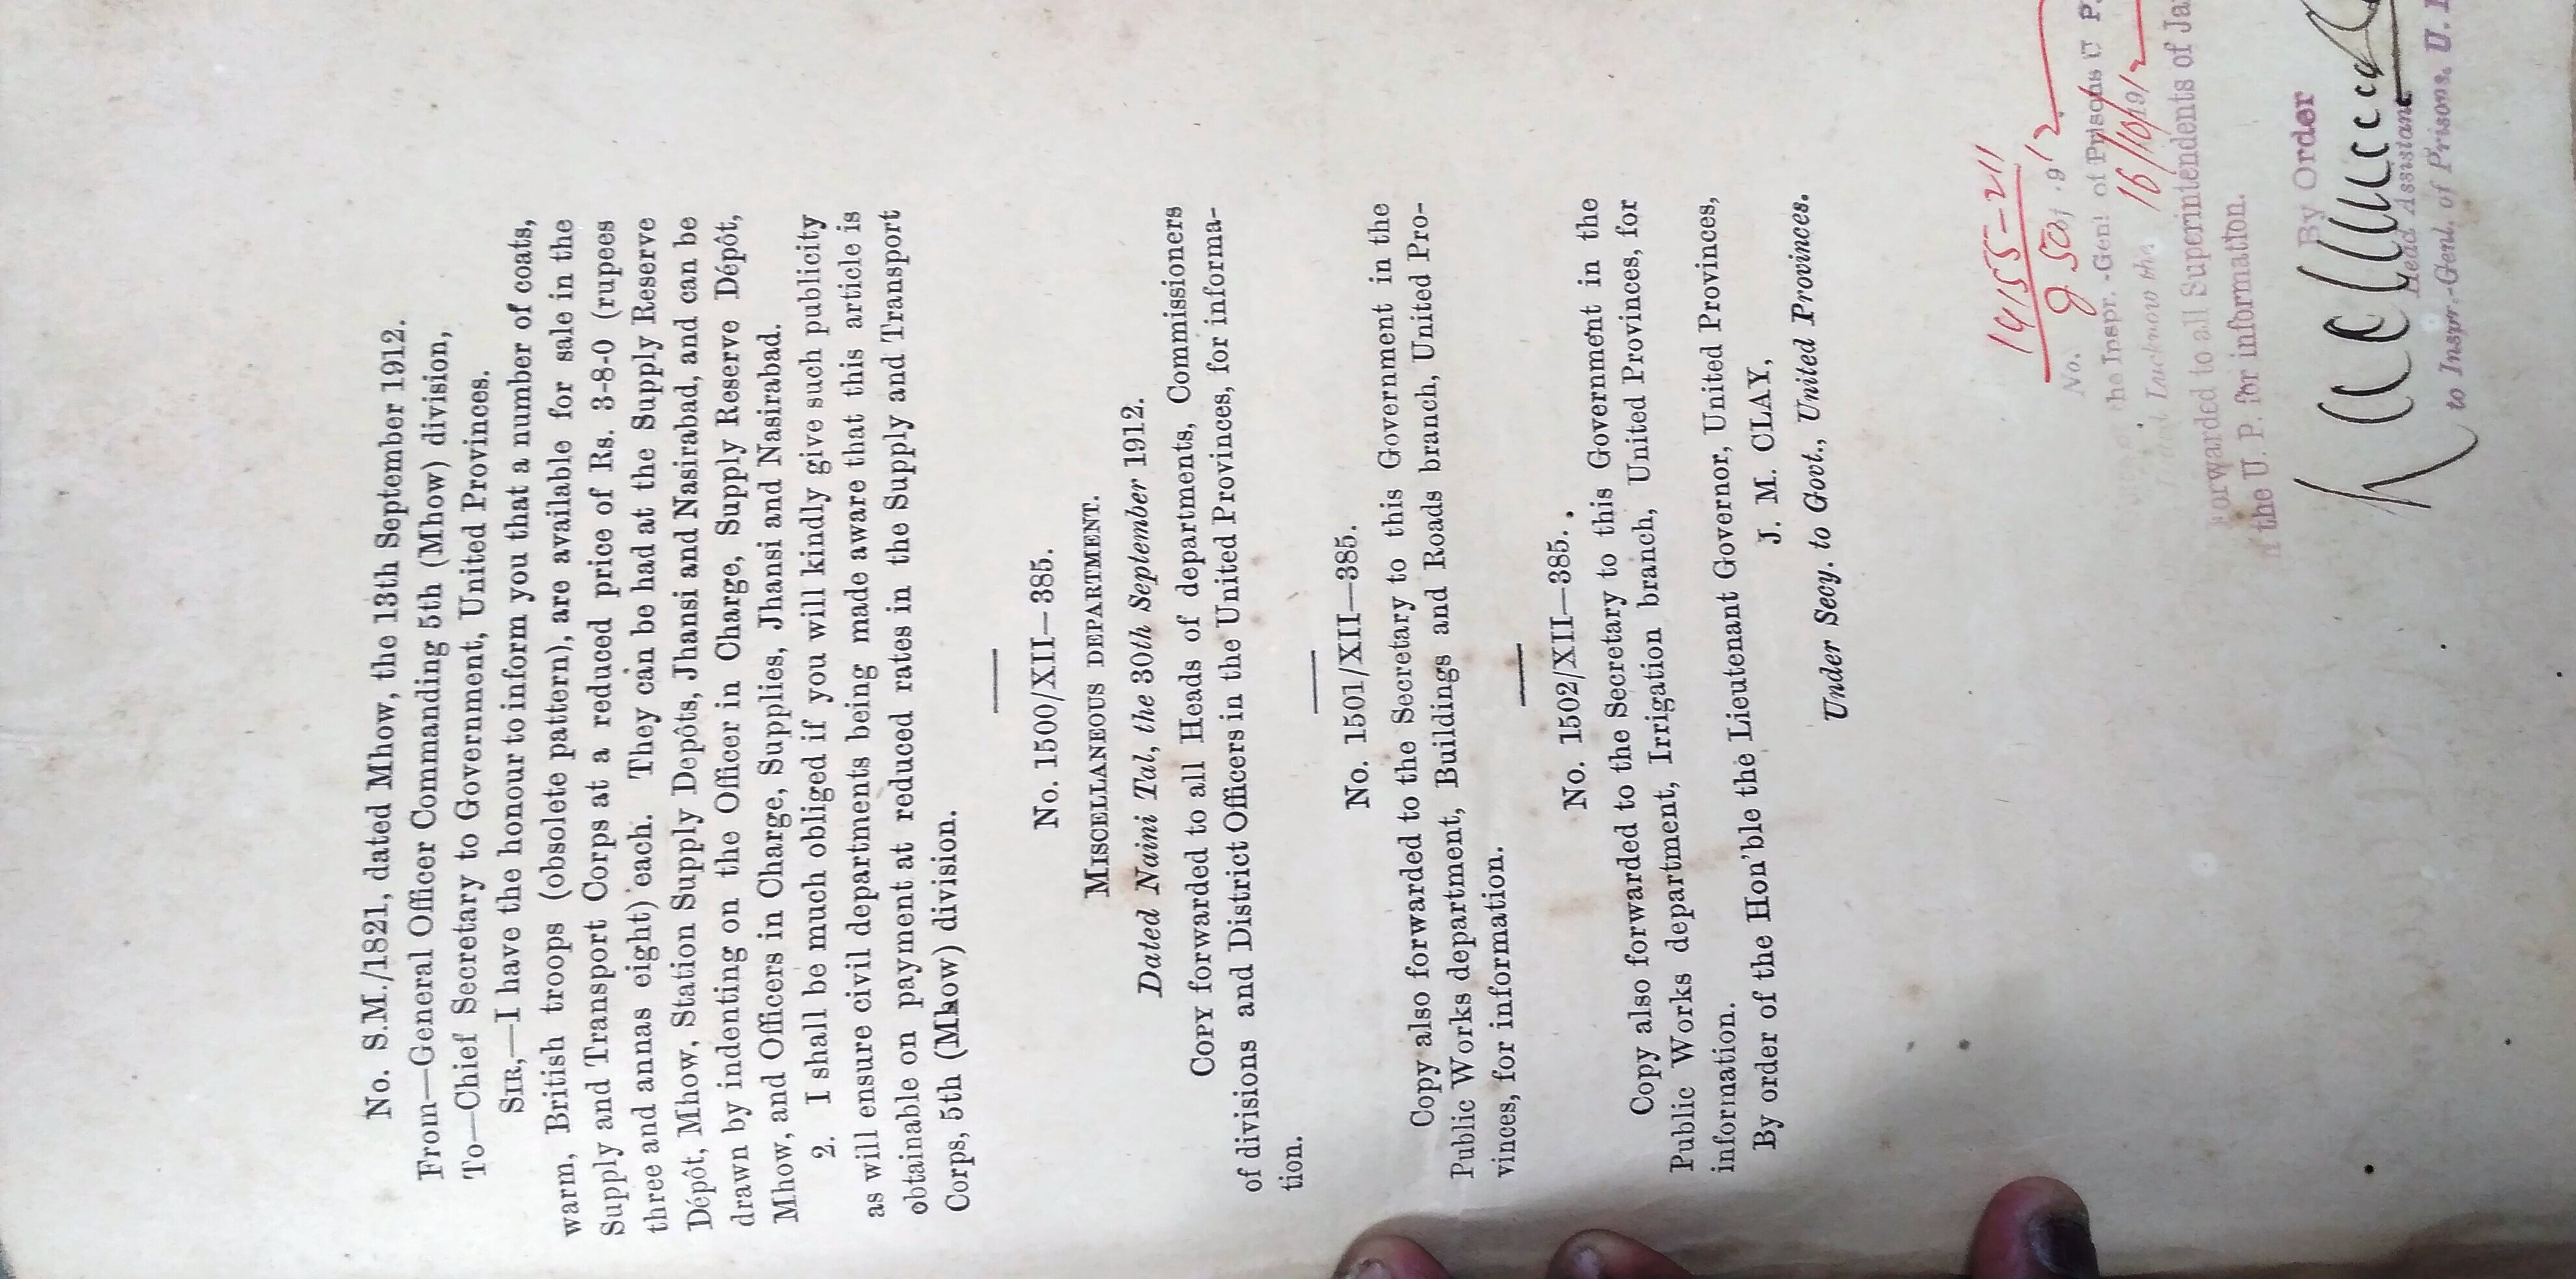 No. S.M./1821, dated Mhow, the 13th September 1912.
From—General Officer Commanding 5th (Mhow) division,
To—Chief Secretary to Government, United Provinces.
SIR,—I have the honour to inform you that a number of coats,
warm, British troops (obsolete pattern), are available for sale in the
Supply and Transport Corps at a reduced price of Rs. 3-8-0 (rupees
three and annas eight) each. They can be had at the Supply Reserve
Dépôt, Mhow, Station Supply Depôts, Jhansi and Nasirabad, and can be
drawn by indenting on the Officer in Charge, Supply Reserve Dépôt,
Mhow, and Officers in Charge, Supplies, Jhansi and Nasirabad.
2. I shall be much obliged if you will kindly give such publicity
as will ensure civil departments being made aware that this article is
obtainable on payment at reduced rates in the Supply and Transport
Corps, 5th (Mhow) division.
No. 1500/XII—385.
MISCELLANEOUS DEPARTMENT.
Dated Naini Tal, the 30th September 1912.
COPY forwarded to all Heads of departments, Commissioners
of divisions and District Officers in the United Provinces, for informa-
tion.
No. 1501/XII—385.
Copy also forwarded to the Secretary to this Government in the
Public Works department, Buildings and Roads branch, United Pro-
vinces, for information.
No. 1502/XII—385.
Copy also forwarded to the Secretary to this Government in the
Public Works department, Irrigation branch, United Provinces, for
information.
By order of the Hon'ble the Lieutenant Governor, United Provinces,
J. M. CLAY,
Under Secy. to Govt., United Provinces.
No.
the Inspr.-Genl of Prisons U P.
Lucknow the 16/10/912
Forwarded to all Superintendents of
the U. P. for information.
By Order
Head Assistant
to Inspr.-Genl. of Prisons. U.